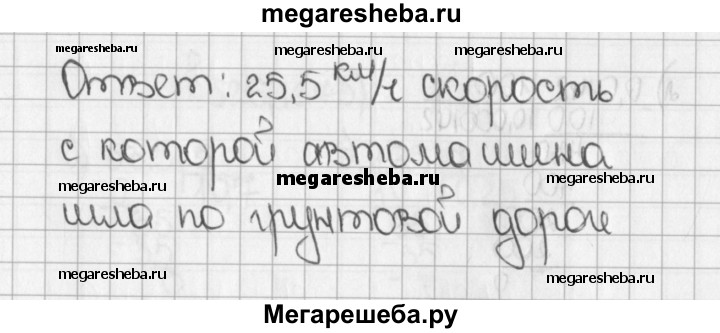 megaresheba.ru
megaresheba.ru megaresheba.ru megaresheba.ru
Ответ: 25,5 км/ч скорость
с которой автомашина
megaresheba.ru megaresheba.ru megaresheba.ru
шла по грунтовой дороге
megaresheba.ru megaresheba.ru megaresheba.ru
Мегарешеба.ру